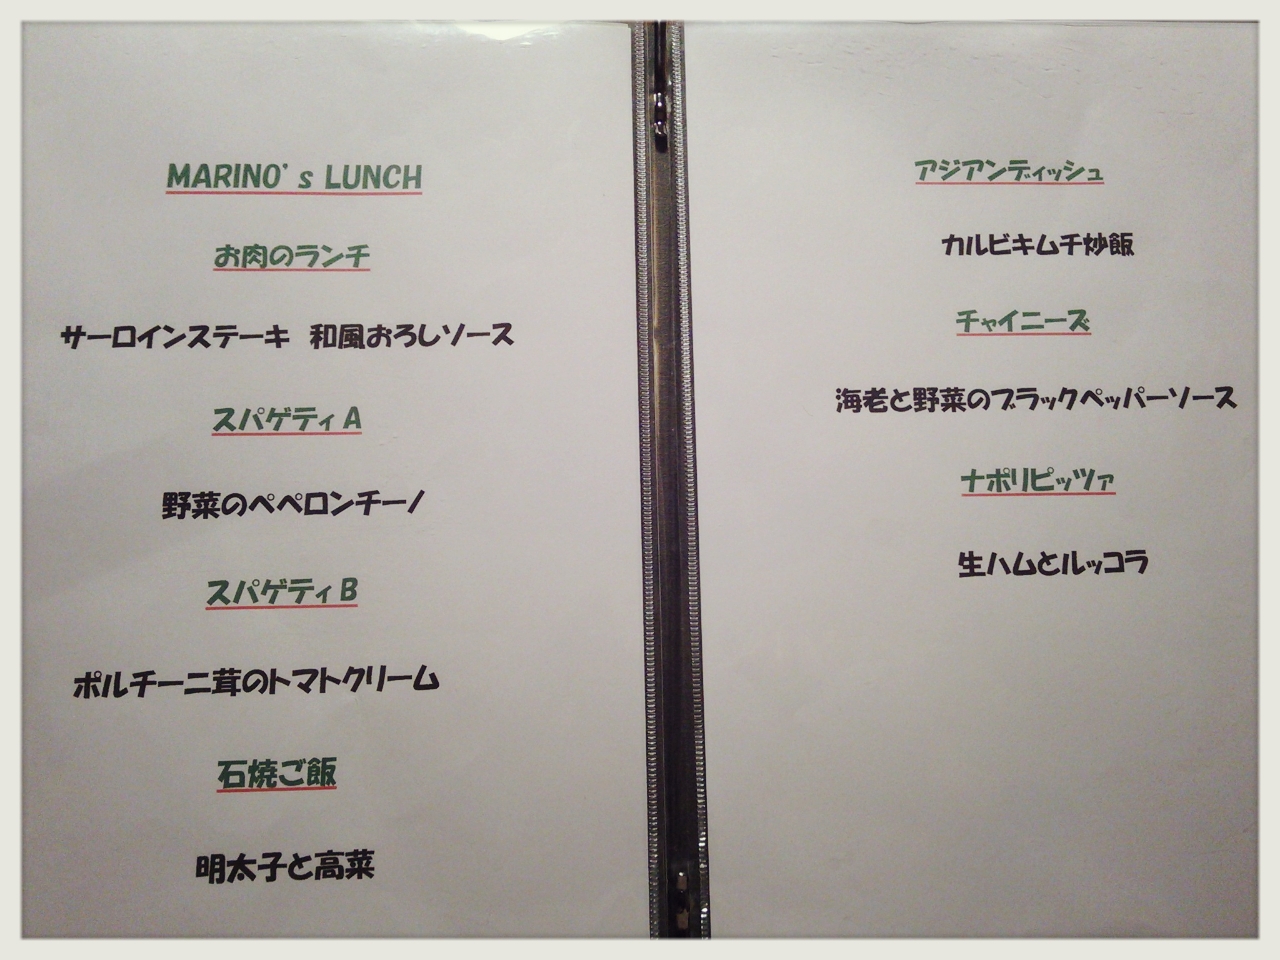 MARINO’s LUNCH
お肉のランチ
サーロインステーキ　和風おろしソース
スパゲティA
野菜のペペロンチーノ
スパゲティB
ポルチーニ茸のトマトクリーム
石焼ご飯
明太子と高菜
アジアンディッシュ
カルビキムチ炒飯
チャイニーズ
海老と野菜のブラックペッパーソース
ナポリピッツァ
生ハムとルッコラ